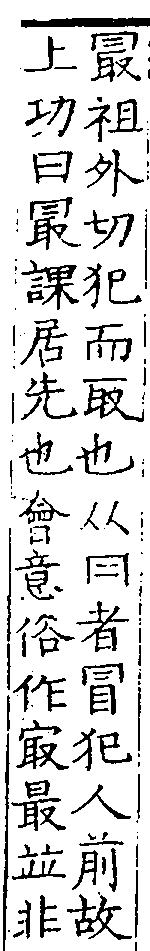 冣祖外切犯而取也从冃者冒犯人前故
上功曰冣課居先也會意俗作㝡最並非